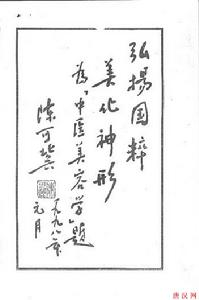 弘扬国粹
美化神形
为《中医美容学》题
陈可冀
一九九八年
元月
唐汉网